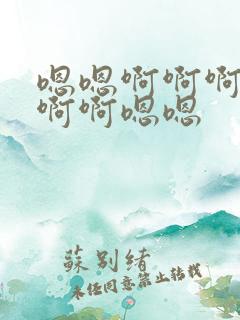 嗯嗯啊啊啊
啊啊嗯嗯
蘇别緒
未经同意禁止转载